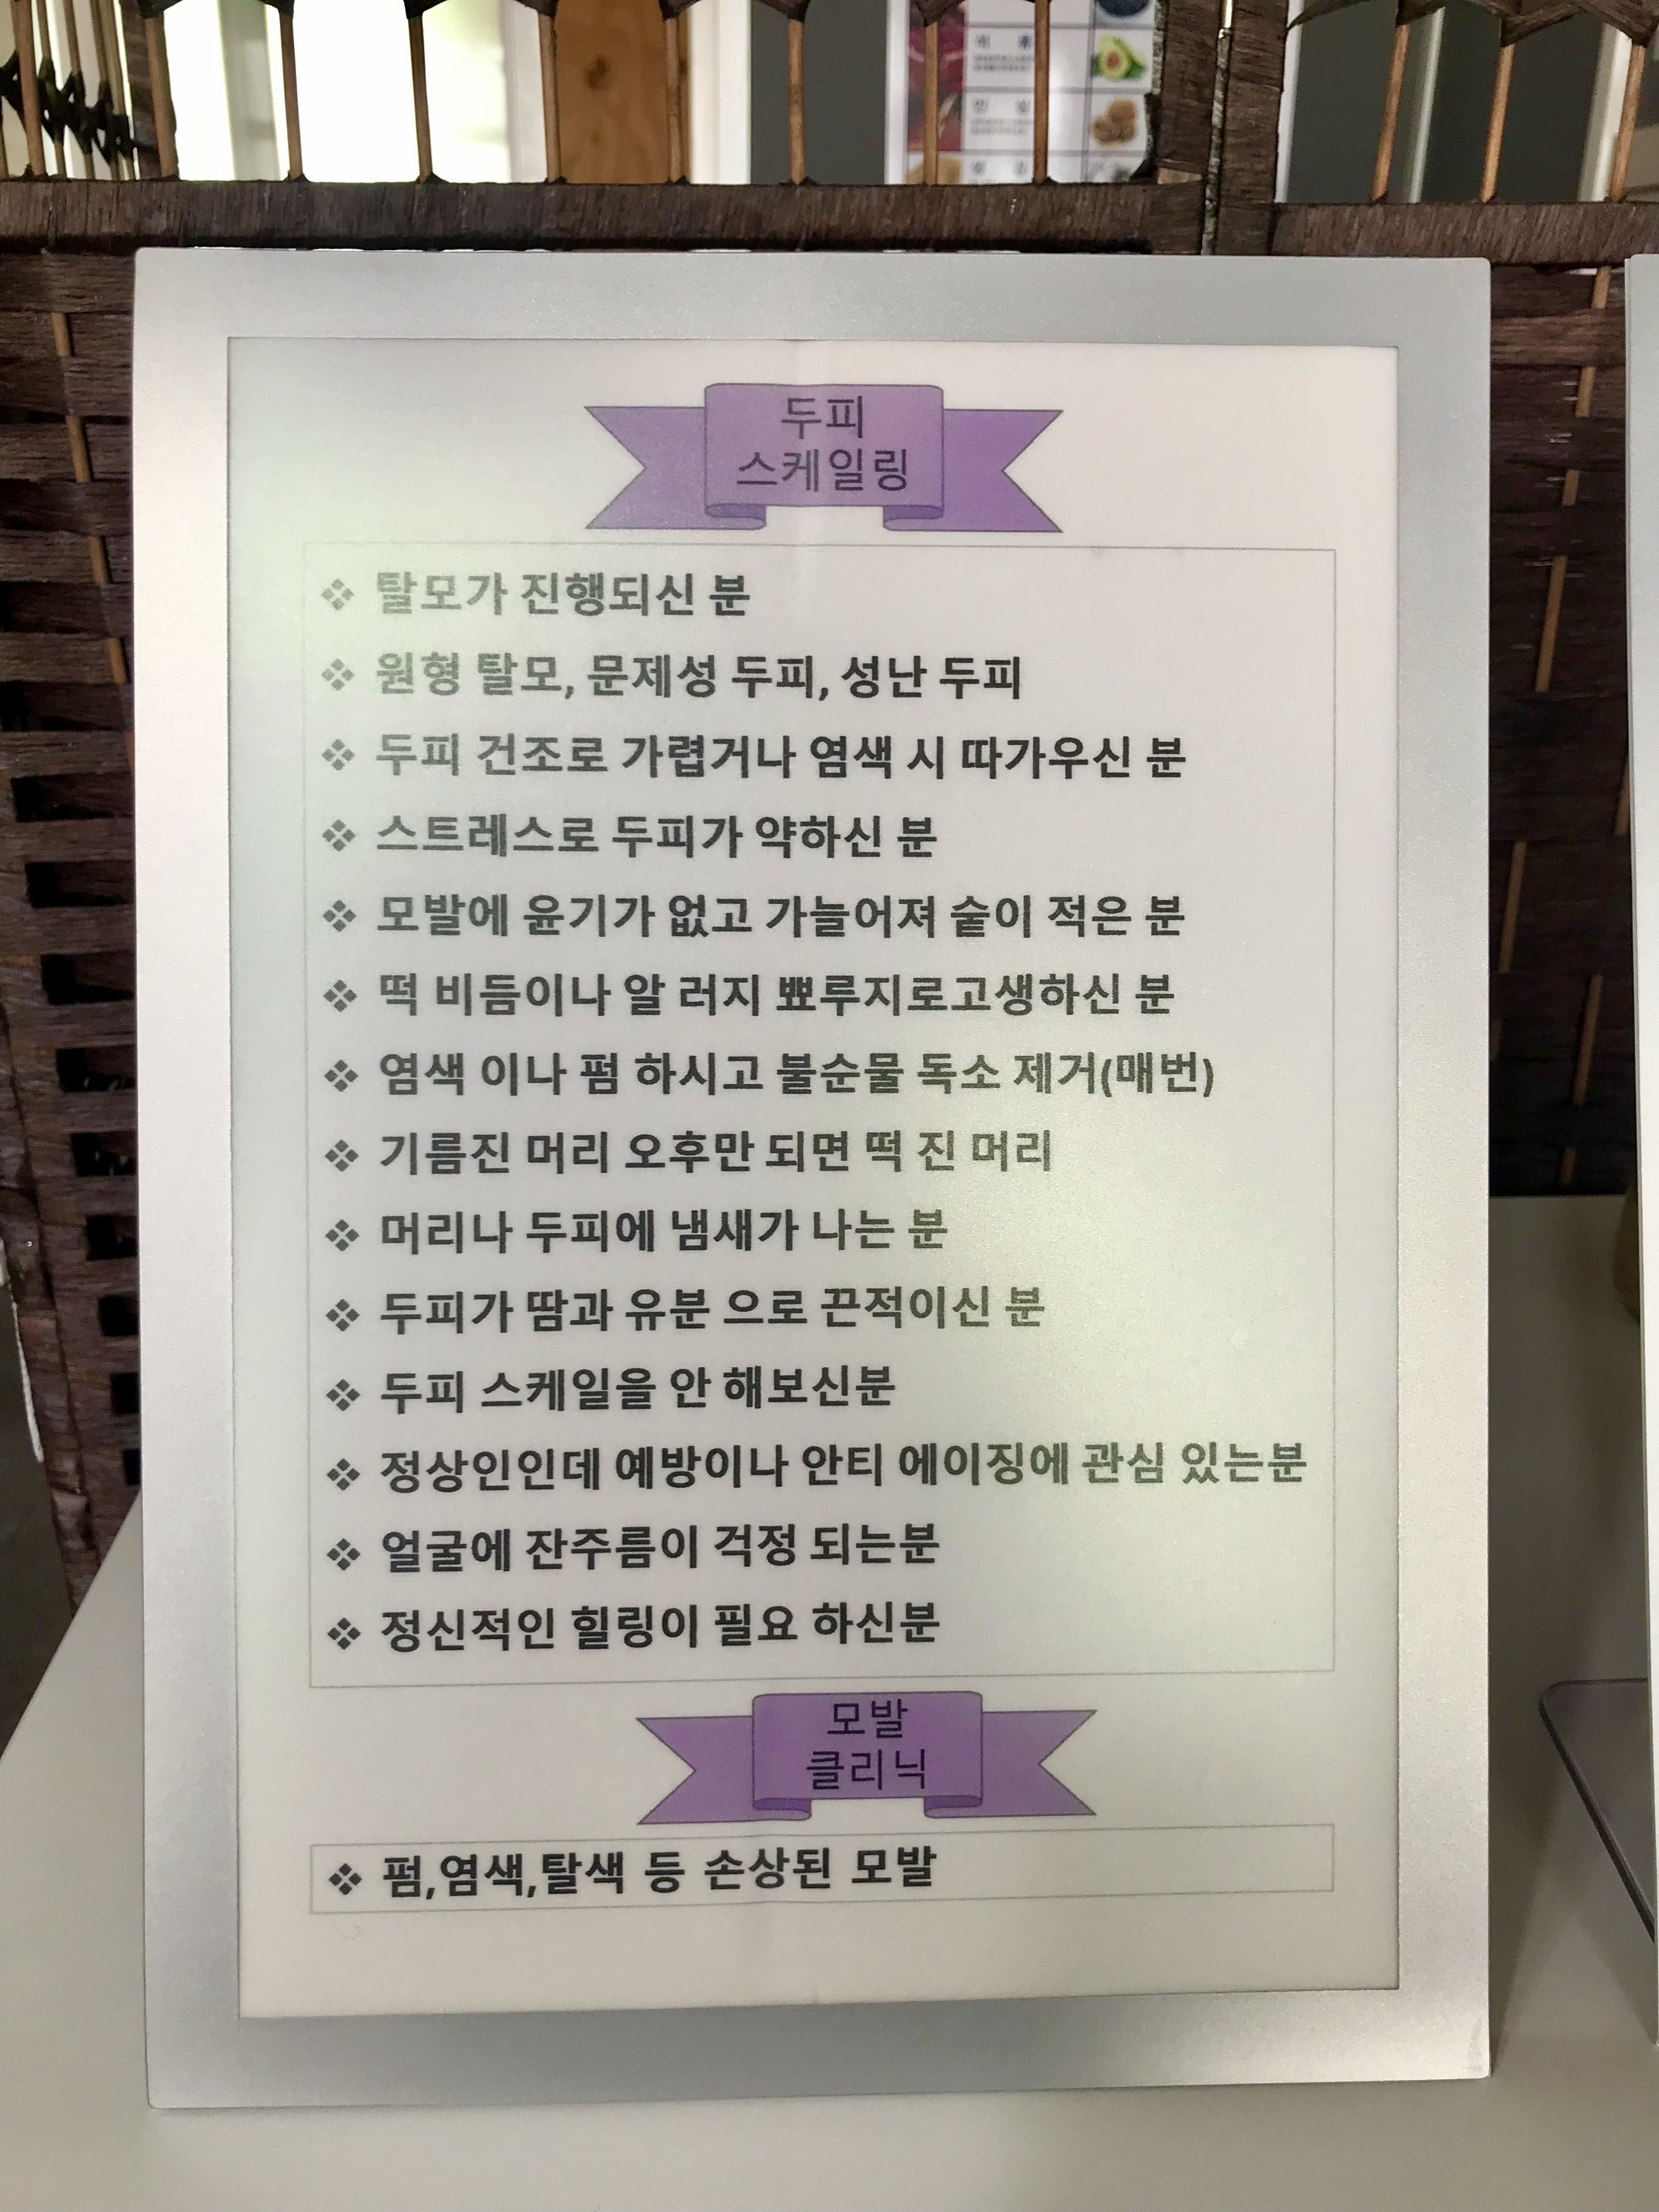 두피
스케일링
❖ 탈모가 진행되신 분
❖ 원형 탈모, 문제성 두피, 성난 두피
❖ 두피 건조로 가렵거나 염색 시 따가우신 분
❖ 스트레스로 두피가 약하신 분
❖ 모발에 윤기가 없고 가늘어져 숱이 적은 분
❖ 떡 비듬이나 알 러지 뾰루지로고생하신 분
❖ 염색 이나 펌 하시고 불순물 독소 제거(매번)
❖ 기름진 머리 오후만 되면 떡 진 머리
❖ 머리나 두피에 냄새가 나는 분
❖ 두피가 땀과 유분 으로 끈적이신 분
❖ 두피 스케일을 안 해보신분
❖ 정상인인데 예방이나 안티 에이징에 관심 있는분
❖ 얼굴에 잔주름이 걱정 되는분
❖ 정신적인 힐링이 필요 하신분
모발
클리닉
❖ 펌,염색,탈색 등 손상된 모발